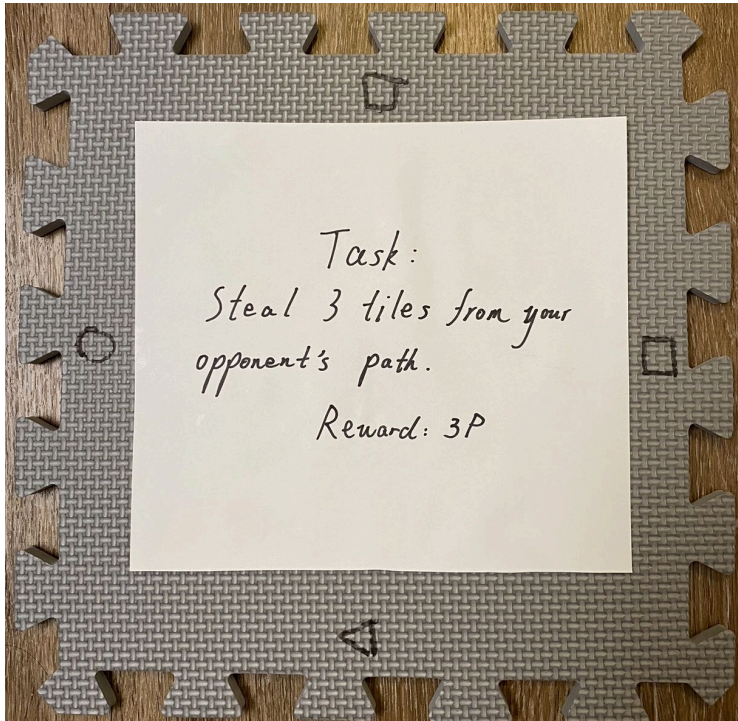 Task:
Steal 3 tiles from your
opponent's path.
Reward: 3P